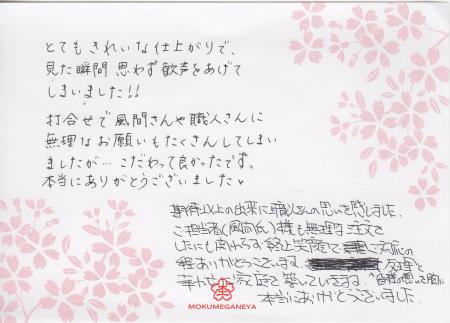 とてもきれいな仕上がりで、
見た瞬間 思わず歓声をあげて
しまいました!!
打合せで風間さんや職人さんに
無理なお願いもたくさんしてしまい
ましたが…こだわって良かったです。
本当にありがとうございました
期待以上の出来に職人さんの思いを感じました。
ご担当者(風間氏)様も無理な注文を
したにも関わらず 笑顔で ご対応の
程ありがとうございます。
家庭を築いていきます。
本当にありがとうございました。
MOKUMEGANEYA